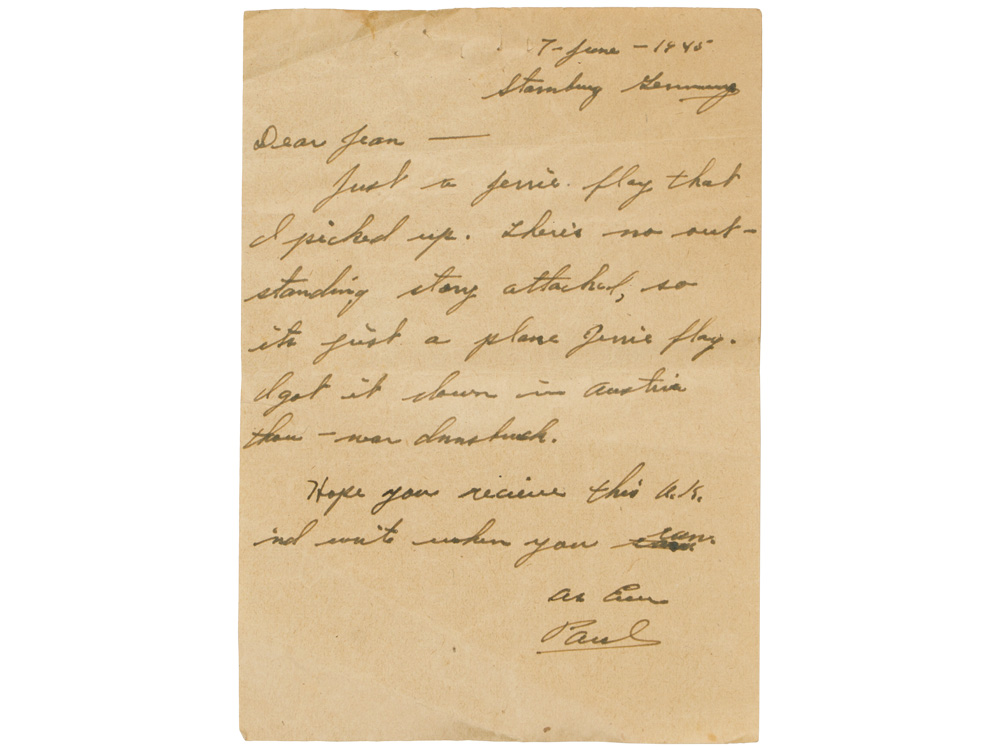 7-June-1945
Starnburg Germany
Dear Jean —
Just a Jerrie flag that
I picked up. There's no out-
standing story attached, so
its just a plane Jerrie flag.
I got it down in Austria
thou - near Innsbruck.
Hope you recieve this O.K.
and write when you can.
As Ever
Paul